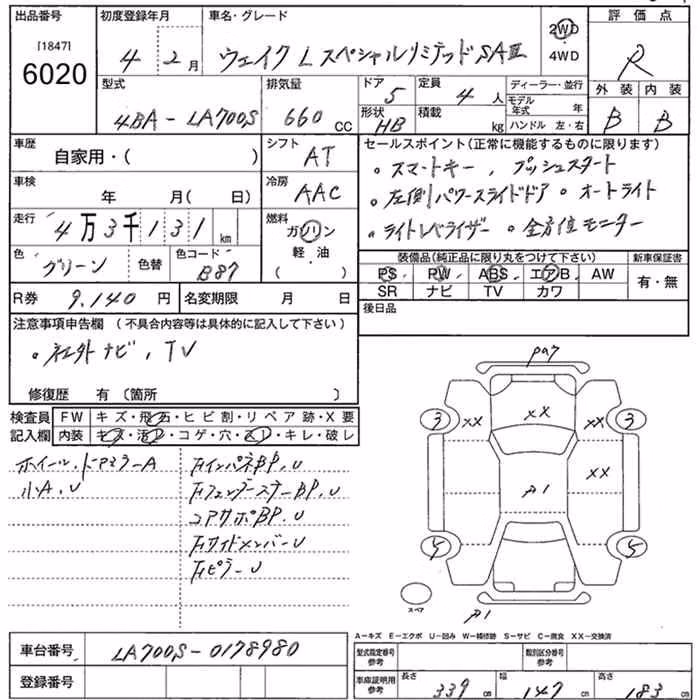 出品番号
[1847]
6020
初度登録年月
4年 2月
車名・グレード
ウェイク L スペシャルリミテッド SAⅢ
2WD
4WD
評価点
R
外装 内装
B B
型式
4BA - LA700S
排気量
660 cc
ドア
5
形状
HB
定員
4 人
積載
kg
ディーラー・並行
モデル年式 年
ハンドル 左・右
車歴
自家用・( )
シフト
AT
車検
年 月( 日)
冷房
AAC
走行
4万3千131 km
燃料
ガソリン
軽・油
( )
色
グリーン
色替
色コード
B87
R券 9,140 円
名変期限 月 日
セールスポイント(正常に機能するものに限ります)
。スマートキー, プッシュスタート
。左側パワースライドドア 。オートライト
。ライトレベライザー 。全方位モニター
装備品(純正品に限り丸をつけて下さい)
PS PW ABS エアB AW
SR ナビ TV カワ
新車保証書
有・無
後日品
注意事項申告欄 (不具合内容等は具体的に記入して下さい)
。社外ナビ, TV
修復歴 有(箇所 )
検査員
記入欄
FW キズ・飛石・ヒビ割・リペア跡・X要
内装 キズ・汚レ・コゲ・穴・スレ・キレ・破レ
ホイール・ドアミラーA
小A, U
FインパネBP, U
FフェンダーステーBP, U
コアサポBP, U
FサイドメンバーU
FピラーU
Pa7
3 XX XX XX 3
XX
P1
5 5
スペア
P1
A−キズ E−エクボ U−凹み W−補修跡 S−サビ C−腐食 XX−交換済
車台番号
LA700S-0178980
登録番号
型式指定番号
参考
類別区分番号
参考
車庫証明用
参考
長さ 339 cm
幅 147 cm
高さ 183 cm